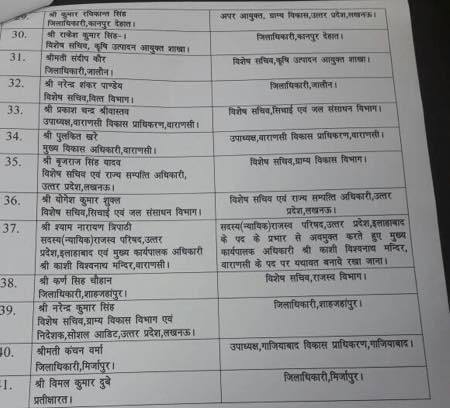 श्री कुमार रविकान्त सिंह
जिलाधिकारी,कानपुर देहात।
अपर आयुक्त, ग्राम्य विकास,उत्तर प्रदेश,लखनऊ।
30.
श्री राकेश कुमार सिंह-।
विशेष सचिव, कृषि उत्पादन आयुक्त शाखा।
जिलाधिकारी,कानपुर देहात।
31.
श्रीमती संदीप कौर
जिलाधिकारी,जालौन।
विशेष सचिव,कृषि उत्पादन आयुक्त शाखा।
32.
श्री नरेन्द्र शंकर पाण्डेय
विशेष सचिव,वित्त विभाग।
जिलाधिकारी,जालौन।
33.
श्री प्रकाश चन्द्र श्रीवास्तव
उपाध्यक्ष,वाराणसी विकास प्राधिकरण,वाराणसी।
विशेष सचिव,सिंचाई एवं जल संसाधन विभाग।
34.
श्री पुलकित खरे
मुख्य विकास अधिकारी,वाराणसी।
उपाध्यक्ष,वाराणसी विकास प्राधिकरण,वाराणसी।
35.
श्री बृजराज सिंह यादव
विशेष सचिव एवं राज्य सम्पत्ति अधिकारी,
उत्तर प्रदेश,लखनऊ।
विशेष सचिव,ग्राम्य विकास विभाग।
36.
श्री योगेश कुमार शुक्ल
विशेष सचिव,सिंचाई एवं जल संसाधन विभाग।
विशेष सचिव एवं राज्य सम्पत्ति अधिकारी,उत्तर
प्रदेश,लखनऊ।
37.
श्री श्याम नारायण त्रिपाठी
सदस्य(न्यायिक)राजस्व परिषद,उत्तर
प्रदेश,इलाहाबाद एवं मुख्य कार्यपालक अधिकारी
श्री काशी विश्वनाथ मन्दिर,वाराणसी।
सदस्य(न्यायिक)राजस्व परिषद,उत्तर प्रदेश,इलाहाबाद
के पद के प्रभार से अवमुक्त करते हुए मुख्य
कार्यपालक अधिकारी श्री काशी विश्वनाथ मन्दिर,
वाराणसी के पद पर यथावत बनाये रखा जाना।
38.
श्री कर्ण सिंह चौहान
जिलाधिकारी,शाहजहांपुर।
विशेष सचिव,राजस्व विभाग।
39.
श्री नरेन्द्र कुमार सिंह
विशेष सचिव,ग्राम्य विकास विभाग एवं
निदेशक,सोशल आडिट,उत्तर प्रदेश,लखनऊ।
जिलाधिकारी,शाहजहांपुर।
40.
श्रीमती कंचन वर्मा
जिलाधिकारी,मिर्जापुर।
उपाध्यक्ष,गाजियाबाद विकास प्राधिकरण,गाजियाबाद।
41.
श्री विमल कुमार दुबे
प्रतीक्षारत।
जिलाधिकारी,मिर्जापुर।